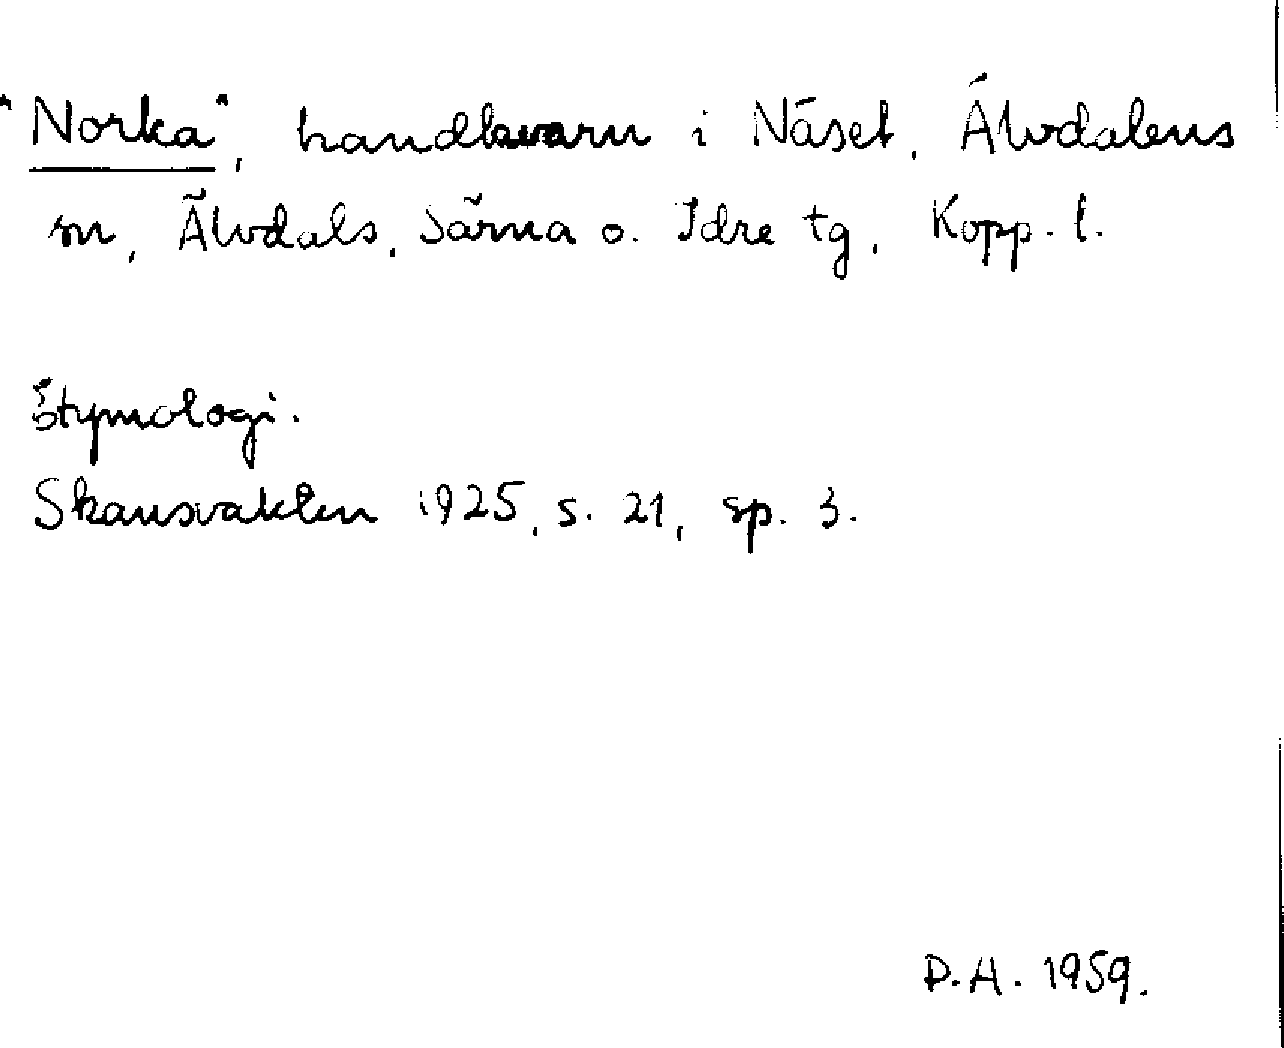 "Norka", handkvarn i Näset, Älvdalens
sn, Älvdals, Särna o. Idre tg, Kopp. l.
Etymologi.
Skansvakten 1925, s. 21, sp. 3.
D.A. 1959.